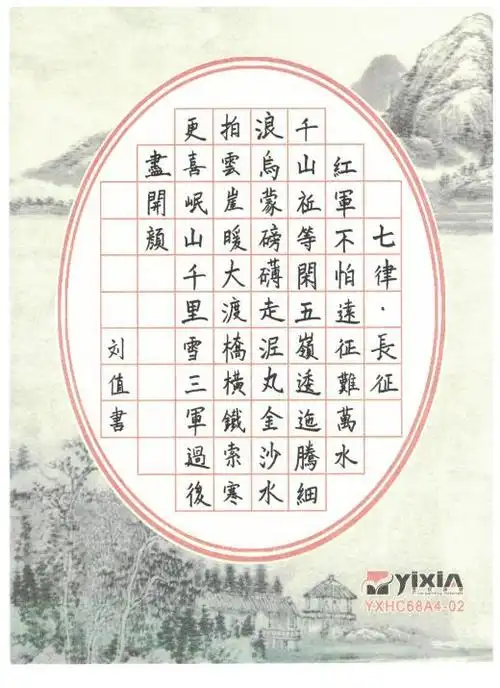 七律·長征
紅軍不怕遠征難萬水
千山祗等閑五嶺逶迤騰細
浪烏蒙磅礴走泥丸金沙水
拍雲崖暖大渡橋橫鐵索寒
更喜岷山千里雪三軍過後
盡開顏
刘值書
YIXIN
YXHC68A4-02